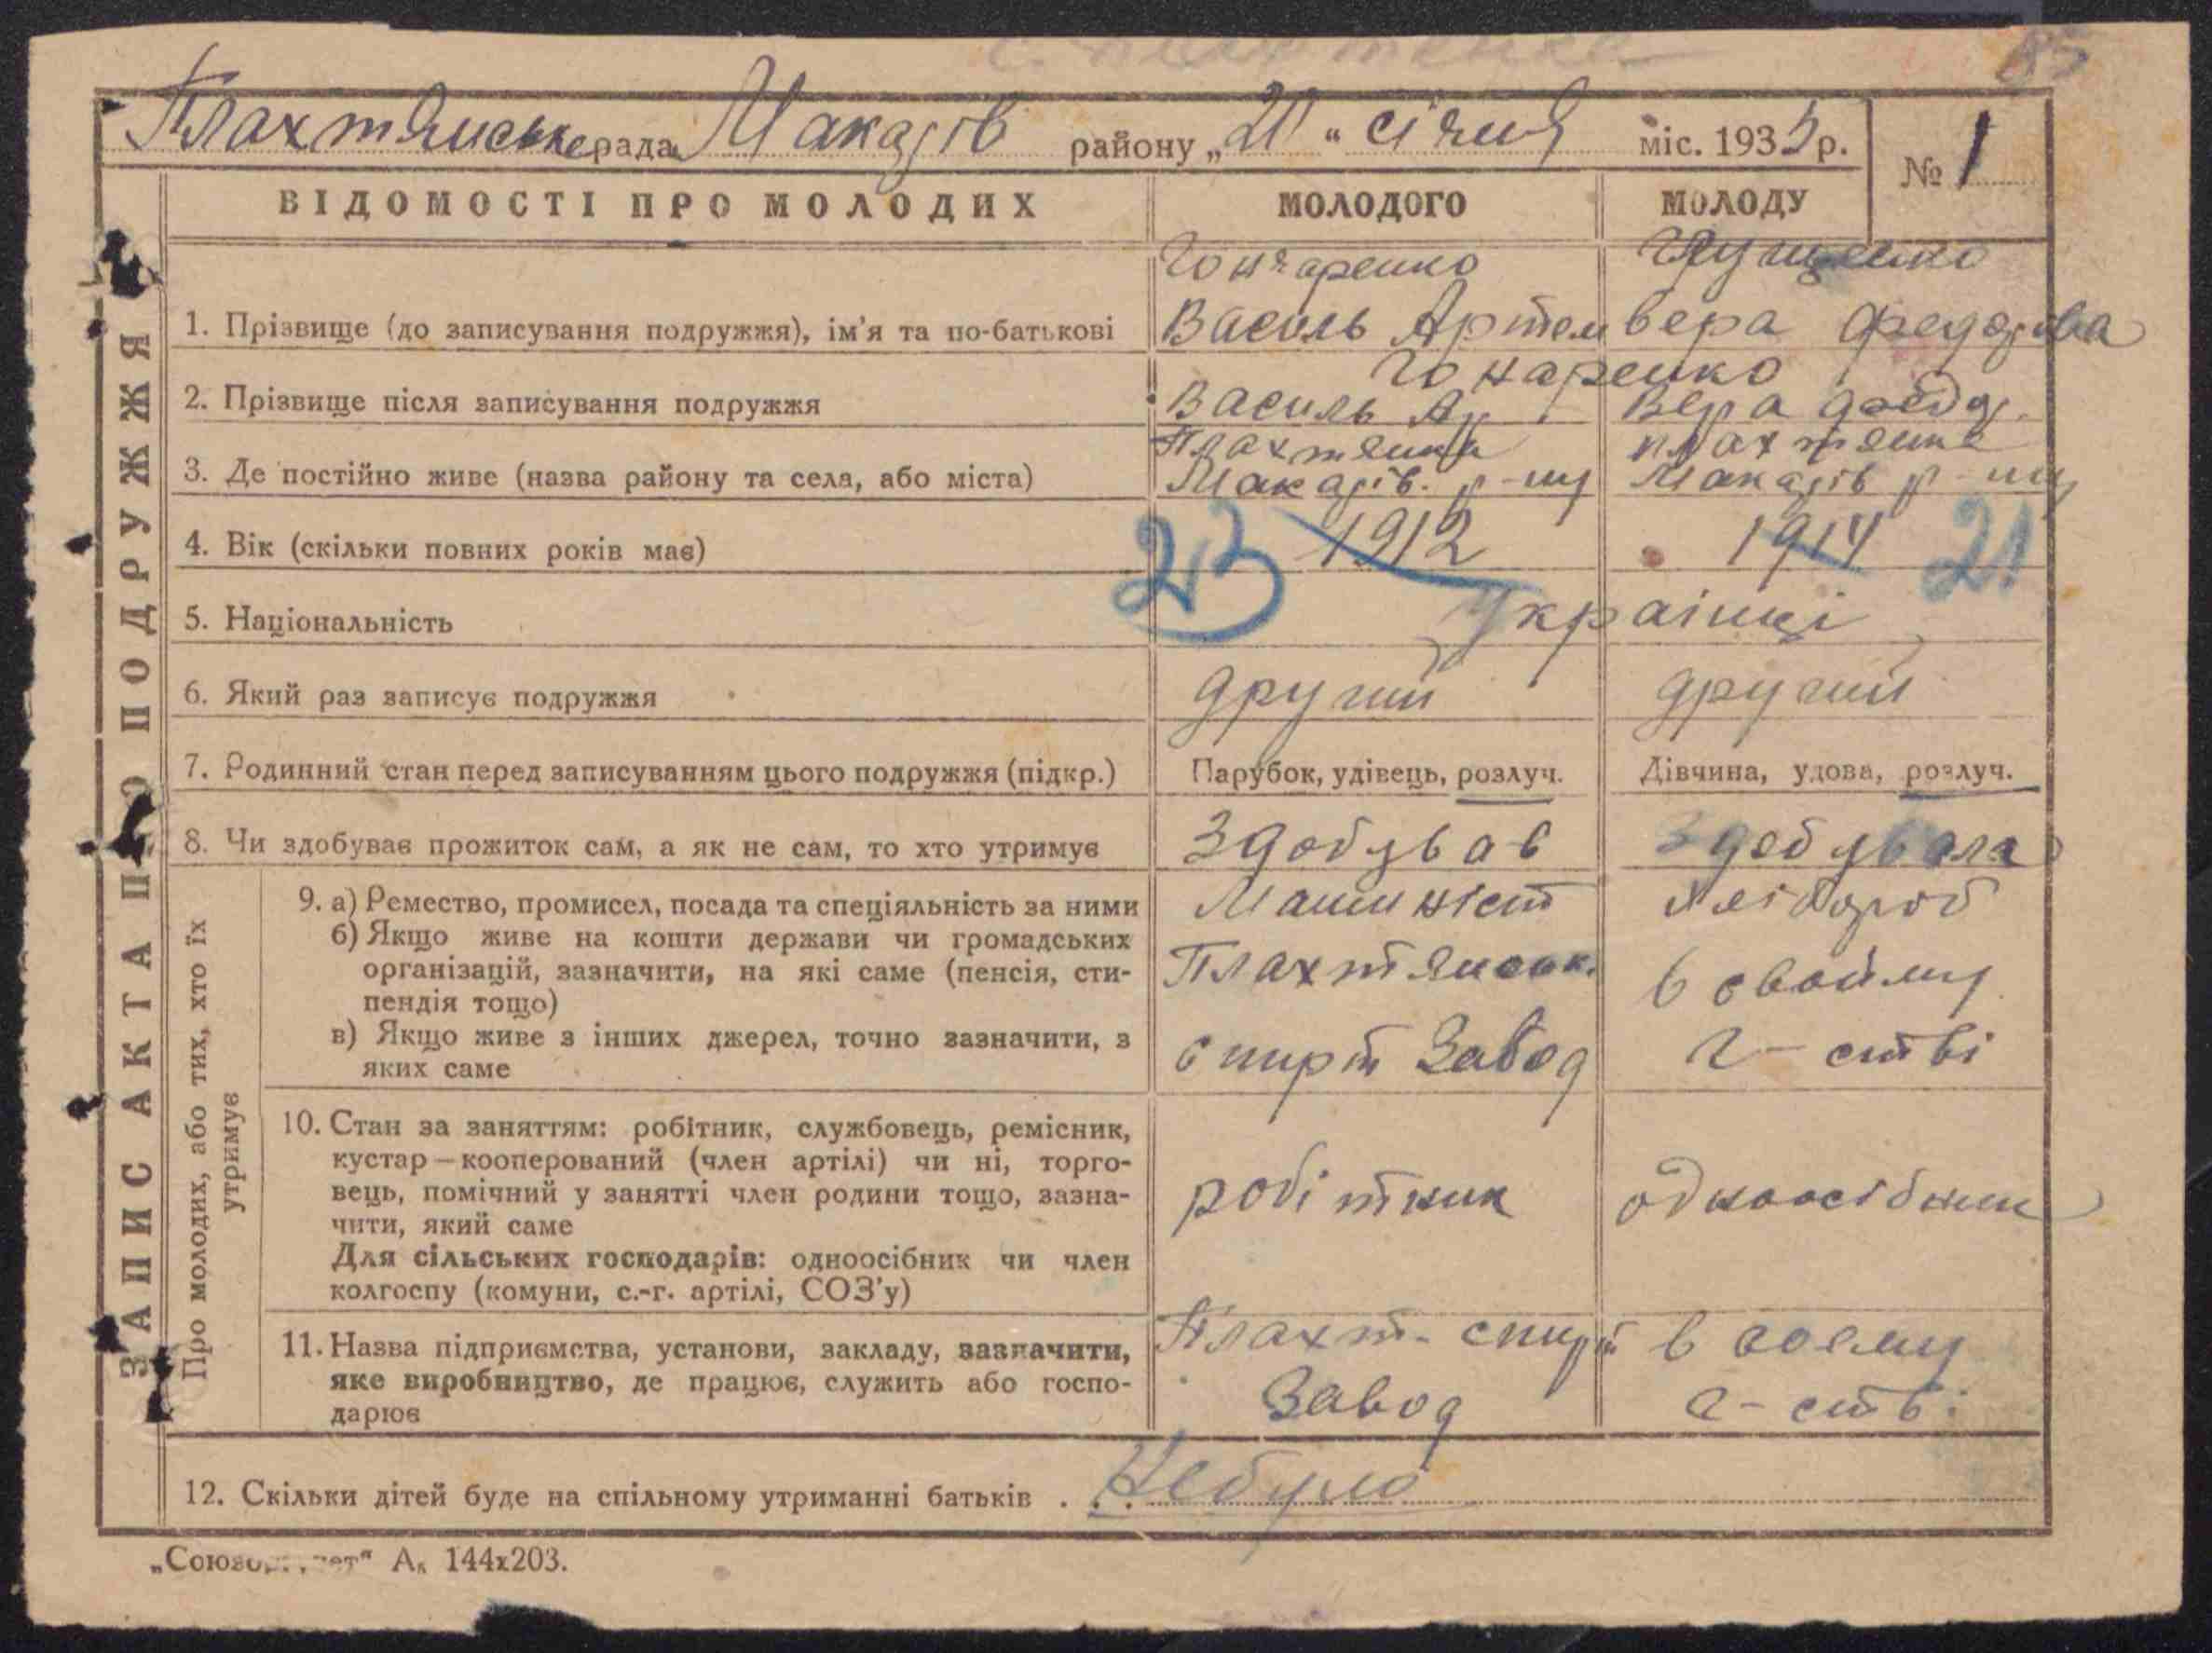 с. Плахтянка
85
Плахтянське рада Макарів району „20“ січня міс. 1935 р.
№ 1
ЗАПИС АКТА ПРО ПОДРУЖЖЯ
ВІДОМОСТІ ПРО МОЛОДИХ МОЛОДОГО МОЛОДУ
Гончаренко
1. Прізвище (до записування подружжя), ім'я та по-батькові Василь Артем Вера Федорова
Гонаренко
2. Прізвище після записування подружжя Василь Ар Вера Федор.
Плахтянка Плахтянка
3. Де постійно живе (назва району та села, або міста) Макарів. р-ну Макарів р-ну
4. Вік (скільки повних років має) 23 1912 1914 21
5. Національність Українці
6. Який раз записує подружжя другий другий
7. Родинний стан перед записуванням цього подружжя (підкр.) Парубок, удівець, розлуч. Дівчина, удова, розлуч.
8. Чи здобував прожиток сам, а як не сам, то хто утримує Здобував Здобувала
Про молодих, або тих, хто їх утримує
9. а) Ремество, промисел, посада та спеціяльність за ними Машиніст хлібороб
б) Якщо живе на кошти держави чи громадських
організацій, зазначити, на які саме (пенсія, сти- Плахтянськ. в свойму
пендія тощо)
в) Якщо живе з інших джерел, точно зазначити, з спирт Завод г-стві
яких саме
10. Стан за заняттям: робітник, службовець, ремісник,
кустар — кооперований (член артілі) чи ні, торго-
вець, помічний у занятті член родини тощо, зазна- робітник одноосібник
чити, який саме
Для сільських господарів: одноосібник чи член
колгоспу (комуни, с.-г. артілі, СОЗ'у)
11. Назва підприємства, установи, закладу, зазначити, Плахт- спирт в соєму
яке виробництво, де працює, служить або госпо- Завод г-стві
дарює
12. Скільки дітей буде на спільному утриманні батьків . . . Небуло
144х203.